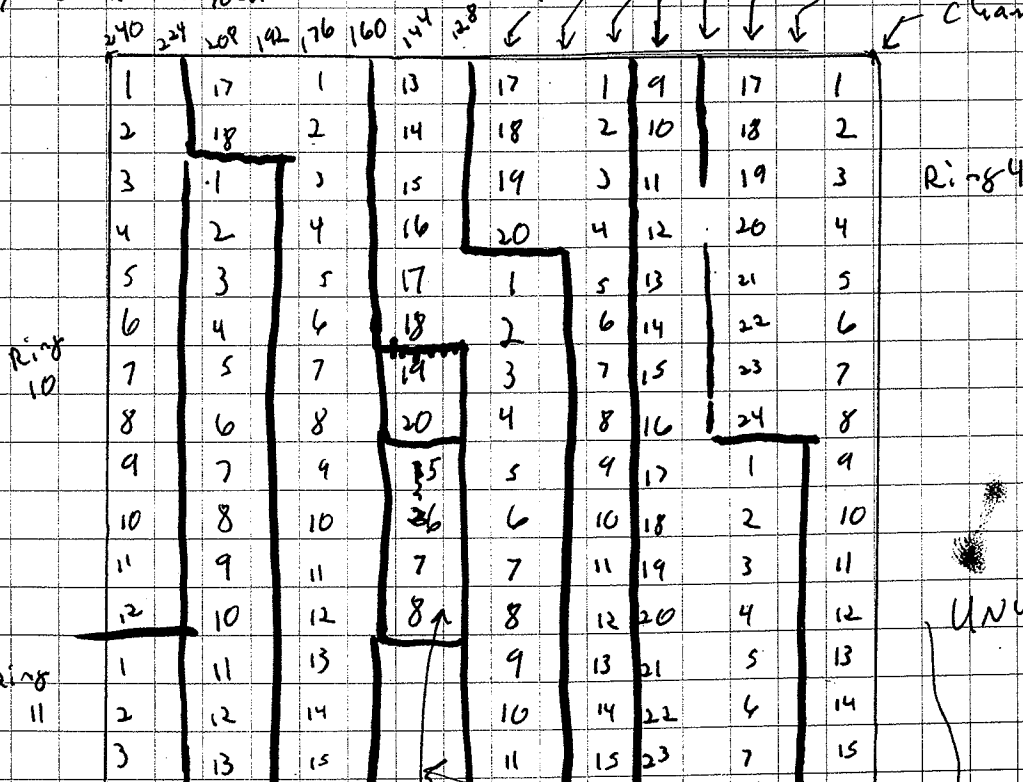 240 224 208 192 176 160 144 128
1 17 1 13 17 1 9 17 1
2 18 2 14 18 2 10 18 2
3 1 3 15 19 3 11 19 3 Ring 4
4 2 4 16 20 4 12 20 4
5 3 5 17 1 5 13 21 5
6 4 6 18 2 6 14 22 6
Ring 10
7 5 7 19 3 7 15 23 7
8 6 8 20 4 8 16 24 8
9 7 9 5 5 9 17 1 9
10 8 10 6 6 10 18 2 10
11 9 11 7 7 11 19 3 11
12 10 12 8 8 12 20 4 12
1 11 13 9 13 21 5 13
11
2 12 14 10 14 22 6 14
3 13 15 11 15 23 7 15